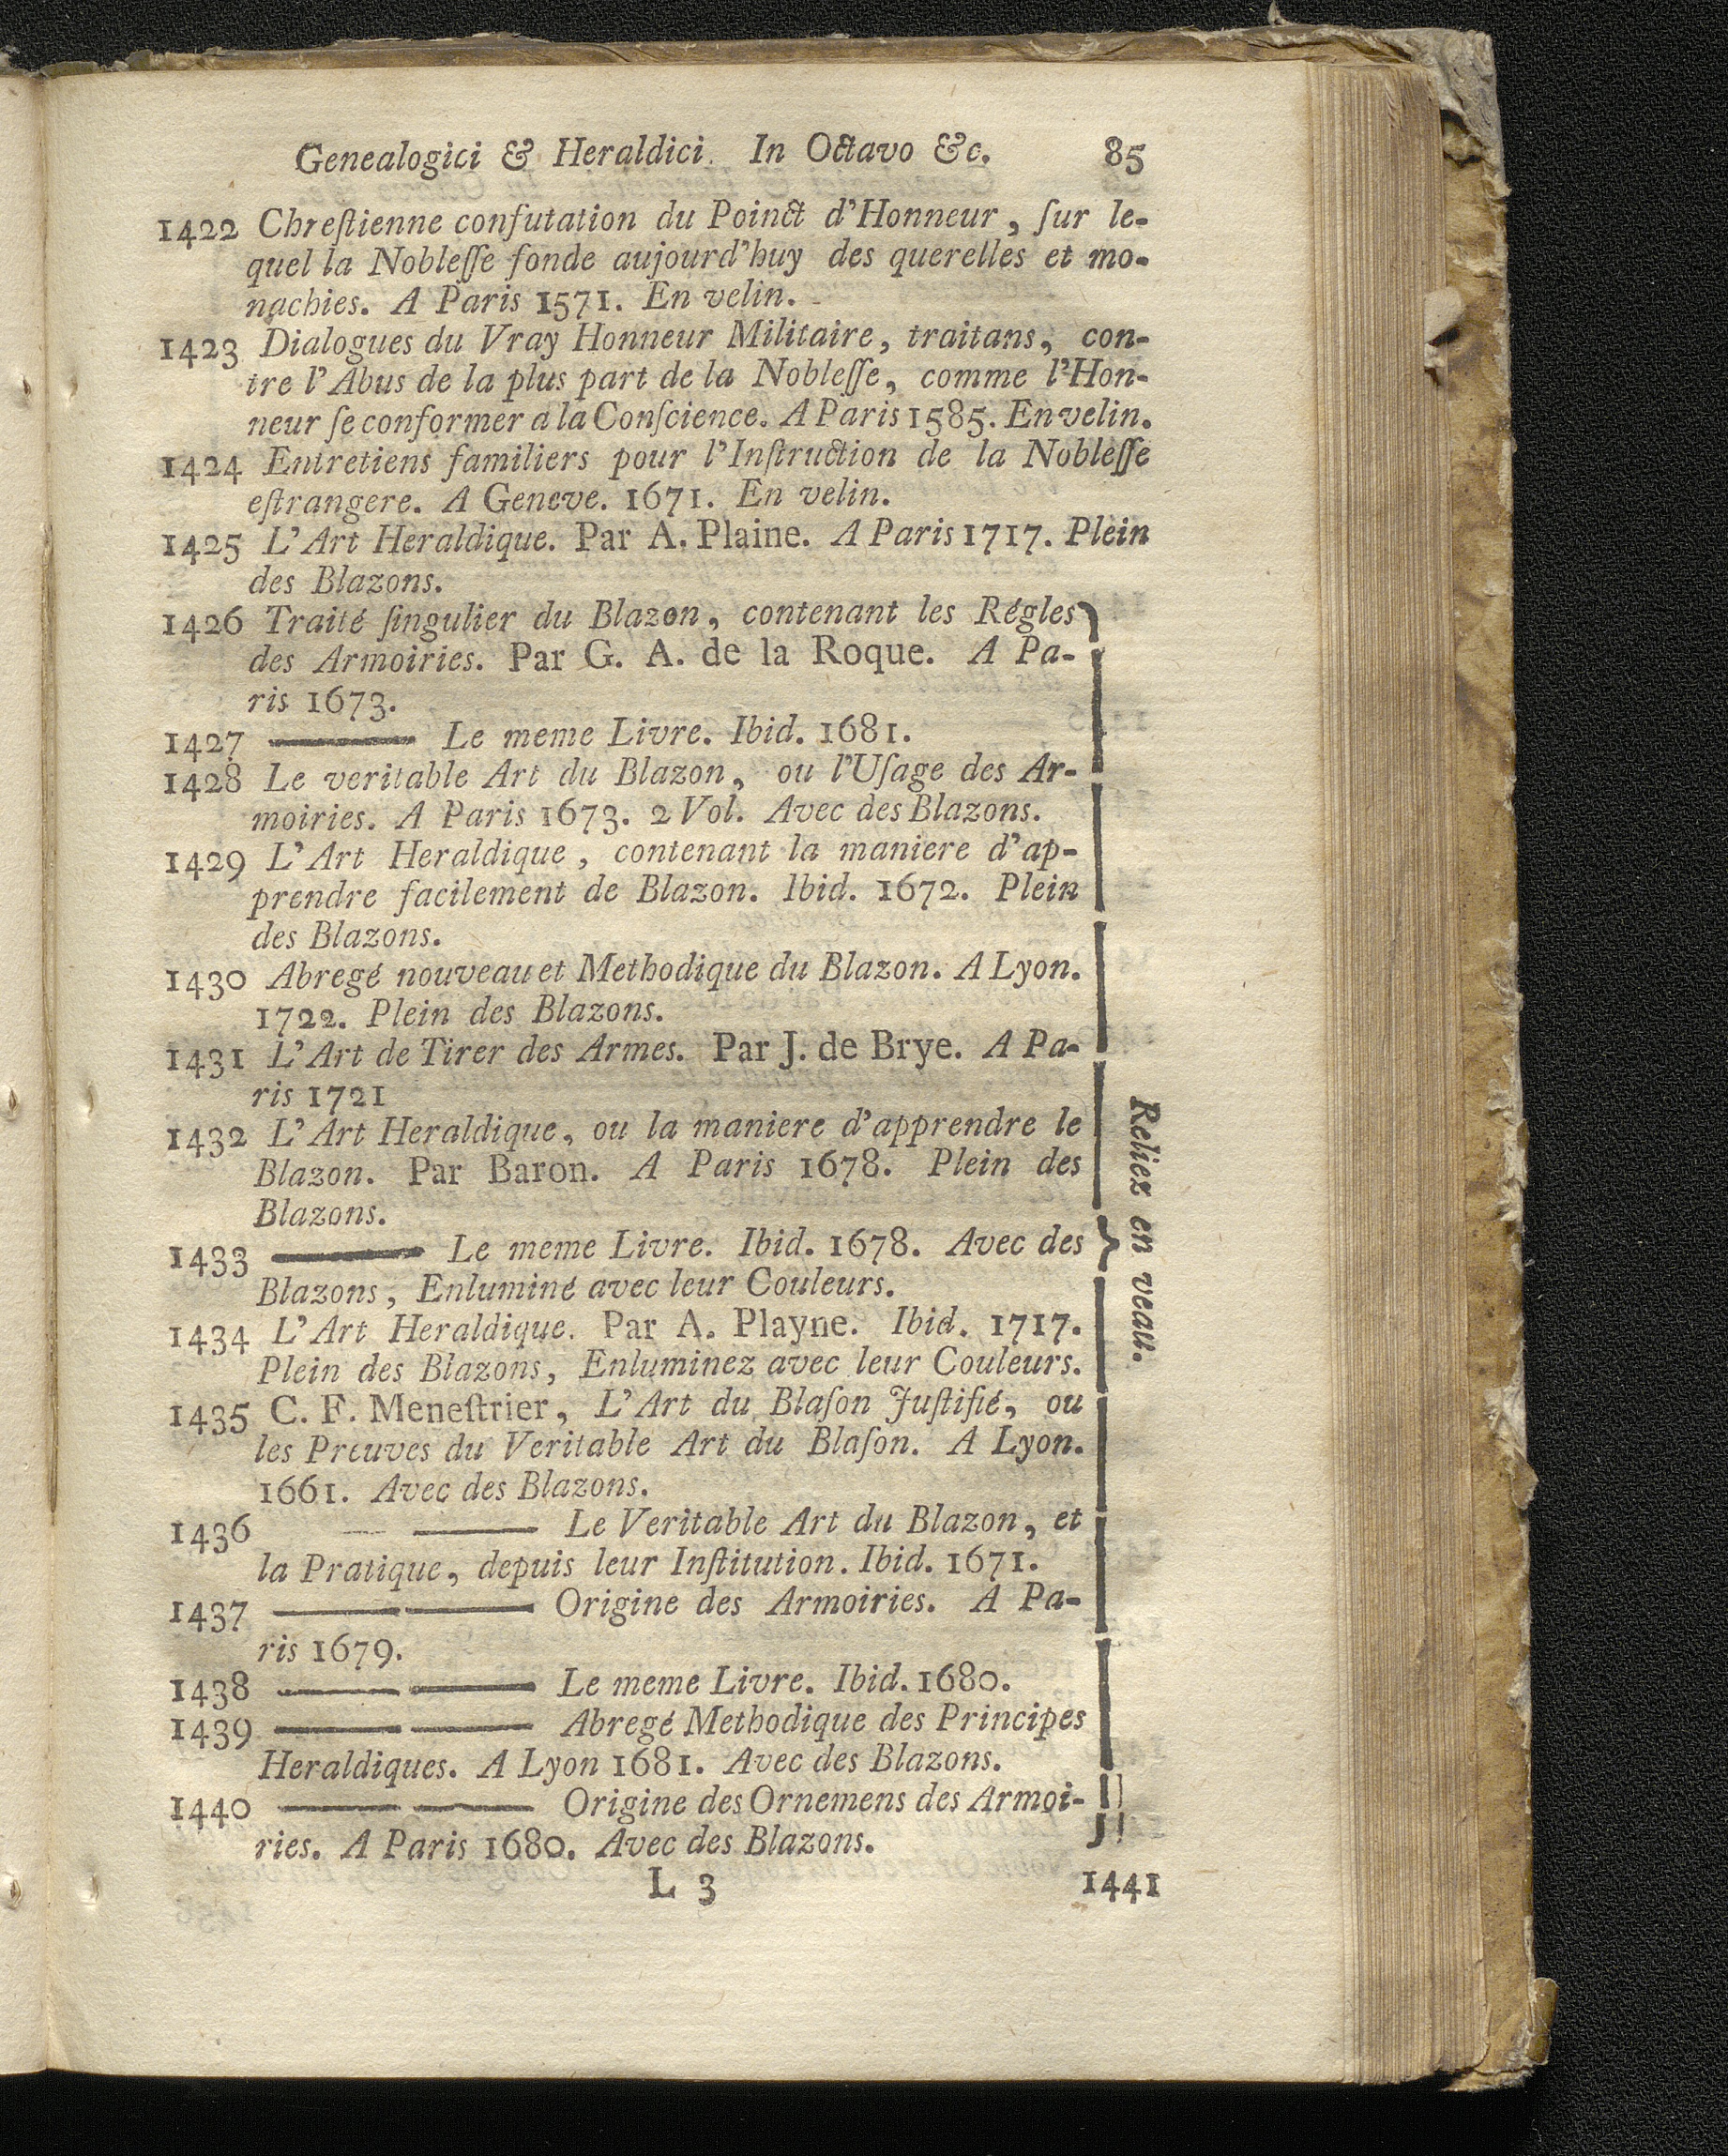 Genealogici & Heraldici. In Octavo &c. 85
1422 Chreſtienne confutation du Poinct d'Honneur, ſur le-
quel la Nobleſſe fonde aujourd'huy des querelles et mo-
nachies. A Paris 1571. En velin.
1423 Dialogues du Vray Honneur Militaire, traitans, con-
tre l'Abus de la plus part de la Nobleſſe, comme l'Hon-
neur ſe conformer a la Conſcience. A Paris 1585. En velin.
1424 Entretiens familiers pour l'Inſtruction de la Nobleſſe
eſtrangere. A Geneve. 1671. En velin.
1425 L'Art Heraldique. Par A. Plaine. A Paris 1717. Plein
des Blazons.
1426 Traité ſingulier du Blazon, contenant les Régles
des Armoiries. Par G. A. de la Roque. A Pa-
ris 1673.
1427 ——— Le meme Livre. Ibid. 1681.
1428 Le veritable Art du Blazon, ou l'Uſage des Ar-
moiries. A Paris 1673. 2 Vol. Avec des Blazons.
1429 L'Art Heraldique, contenant la maniere d'ap-
prendre facilement de Blazon. Ibid. 1672. Plein
des Blazons.
1430 Abregé nouveau et Methodique du Blazon. A Lyon.
1722. Plein des Blazons.
1431 L'Art de Tirer des Armes. Par J. de Brye. A Pa-
ris 1721
1432 L'Art Heraldique, ou la maniere d'apprendre le
Blazon. Par Baron. A Paris 1678. Plein des
Blazons.
1433 ——— Le meme Livre. Ibid. 1678. Avec des
Blazons, Enluminé avec leur Couleurs.
1434 L'Art Heraldique. Par A. Playne. Ibid. 1717.
Plein des Blazons, Enluminez avec leur Couleurs.
1435 C. F. Meneſtrier, L'Art du Blaſon Juſtifié, ou
les Preuves du Veritable Art du Blaſon. A Lyon.
1661. Avec des Blazons.
1436 — ——— Le Veritable Art du Blazon, et
la Pratique, depuis leur Inſtitution. Ibid. 1671.
1437 ——— ——— Origine des Armoiries. A Pa-
ris 1679.
1438 ——— ——— Le meme Livre. Ibid. 1680.
1439 ——— ——— Abregé Methodique des Principes
Heraldiques. A Lyon 1681. Avec des Blazons.
1440 ——— ——— Origine des Ornemens des Armoi-
ries. A Paris 1680. Avec des Blazons.
Reliez en veau.
L 3 1441